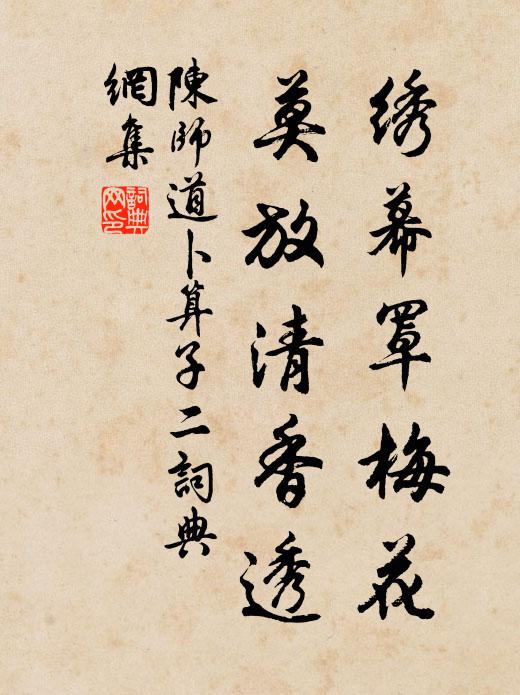 绣幕罩梅花
莫放清香透
陳師道卜算子二詞典
網集
詞典網印